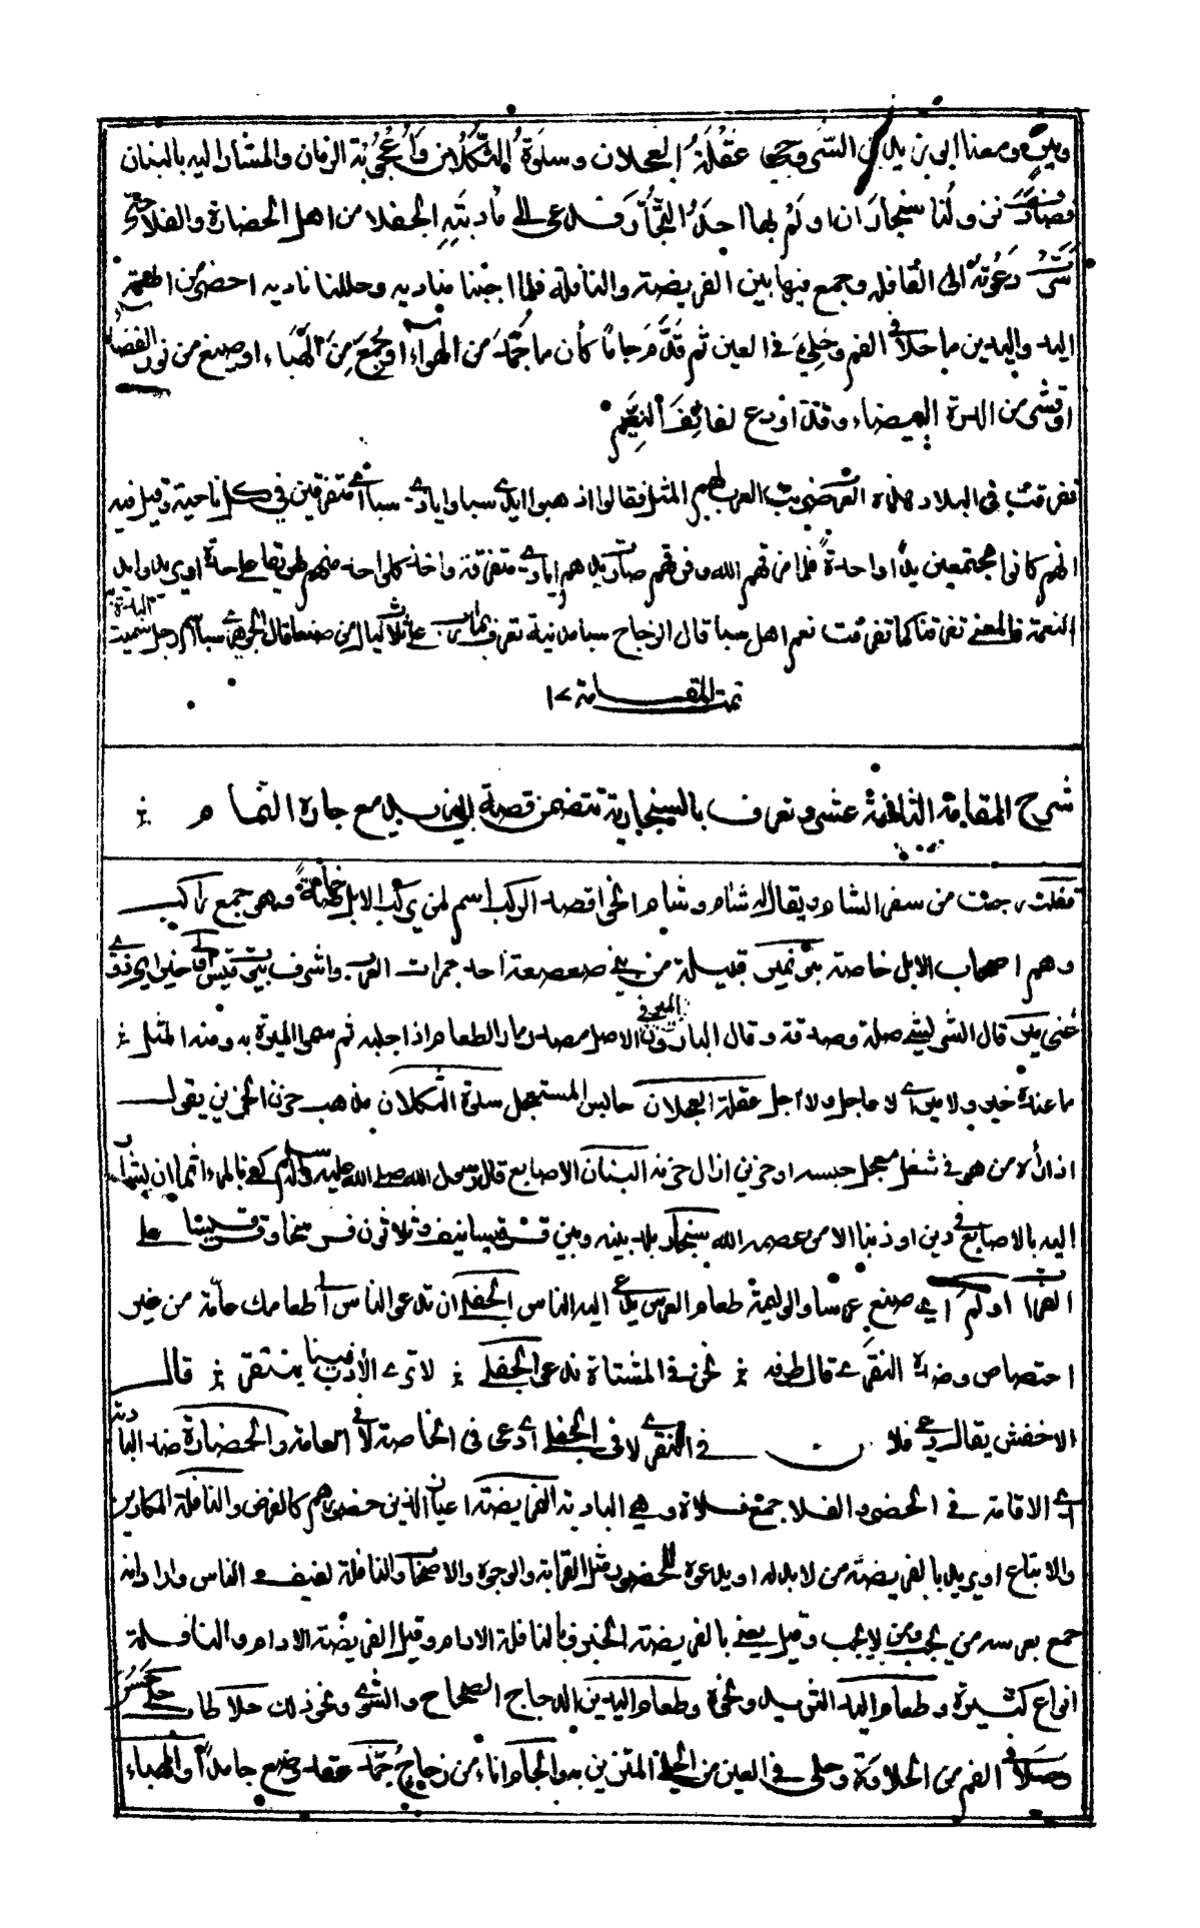 ومير ومعنا ابو زيد السروجي عقلة العجلان وسلوة الثكلان وأعجوبة الزمان والمشار اليه بالبنان
فصادف نزولنا سنجار ان اولم بها احد التجار فدعى الى مأدبته الجفلا من اهل الحضارة والفلا حتى
سرت دعوته الى القافله وجمع فيها بين الفريضة والنافلة فلما اجبنا مناديه وحللنا ناديه احضر من اطعمة
اليد واليدين ما حلا في الفم وحلي في العين ثم قدم جاما كأن ما جمد من الهواء او جمع من الهباء او صيغ من نور الفضاء
او قشر من الدرة البيضاء وقد اودع لفائف النعيم
تفرقت في البلاد فضربت العرب بهم المثل فقالوا اذهبوا ايدي سبا وايادي سبا اي متفرقين في كل ناحية وقيل فيه
انهم كانوا مجتمعين يدا واحدة فلما مزقهم الله وفرقهم صارت يدهم ايادي متفرقة واخذ كل واحد منهم طريقا على حدة او يريد وايد
النعمة فالمعنى تفرقنا كما تفرقت نعم اهل سبا قال الزجاج سبا مدينة تعرف بمارب على ثلاث ليال من صنعا قال الجوهري سبا اسم رجل سميت البلدة به
تمت المقامة ١٧
شرح المقامة الثامنة عشر وتعرف بالسنجارية تتضمن قصة ابي زيد مع جاره النمام
قفلت رجعت من سفر الشام ويقال له شام وشام الخ اقصد الركب اسم لمن يركب الابل خاصة وهي جمع راكب
وهم اصحاب الابل خاصة بني نمير قبيلة من بني صعصعة احد جمرات العرب واشرف بيت قيس
قال الشريشي صلة وصدقة وقال المير في الاصل مصدر مار الطعام اذا جلبه ثم سمى الميرة به ومنه المثل
ما عنده خير ولا مير اي لا عاجل ولا اجل عقلة العجلان حابس المستعجل سلوة الثكلان مذهب حزن الحزين يقول
اذا رأه من هو في شغل معجل حبسه او حزين ازال حزنه البنان الاصابع قال رسول الله صلى الله عليه وسلم كفى بالمرء اثما ان يشار
اليه بالاصابع في دين او دنيا الا من عصمه الله سنجار بلد بينه وبين قرقيسا نيف وثلاثون فرسخا وقرقيسا على
الفرات اولم اي صنع عرسا والوليمة طعام العرس يدعى اليه الناس الجفلى ان تدعو الناس الى طعامك عامة من غير
اختصاص وضده النقرى قال طرفه نحن في المشتاة ندعو الجفلى لا ترى الأدب فينا ينتقر قال
الاخفش يقال دعي فلان في النقرى لا في الجفلى اي دعي في الخاصة لا في العامة والحضارة ضد البادية
اي الاقامة في الحضر والفلا جمع فلاة وهي البادية الفريضة اعيان الذين حضورهم كالفرض والنافلة المكارين
والاتباع او يريد بالفريضة من لا بد له او يدعوه للحضور مثل القرابة والوجوه والاصحاب والنافلة لفيف الناس واراد انه
جمع بعرسه من يجب ومن لا يجب وقيل يعني بالفريضة الخبز وبالنافلة الادام وقيل الفريضة الادام والنافلة
انواع كثيرة وطعام اليد الثريد ونحوه وطعام اليدين الدجاج الصحاح والشوي ونحو ذلك حلا طاب حلي حسن
وحلا في الفم من الحلاوة وحلى في العين من الحلى المتزين به والجام اناء من زجاج جمد عقد وضع جامدا والهباء